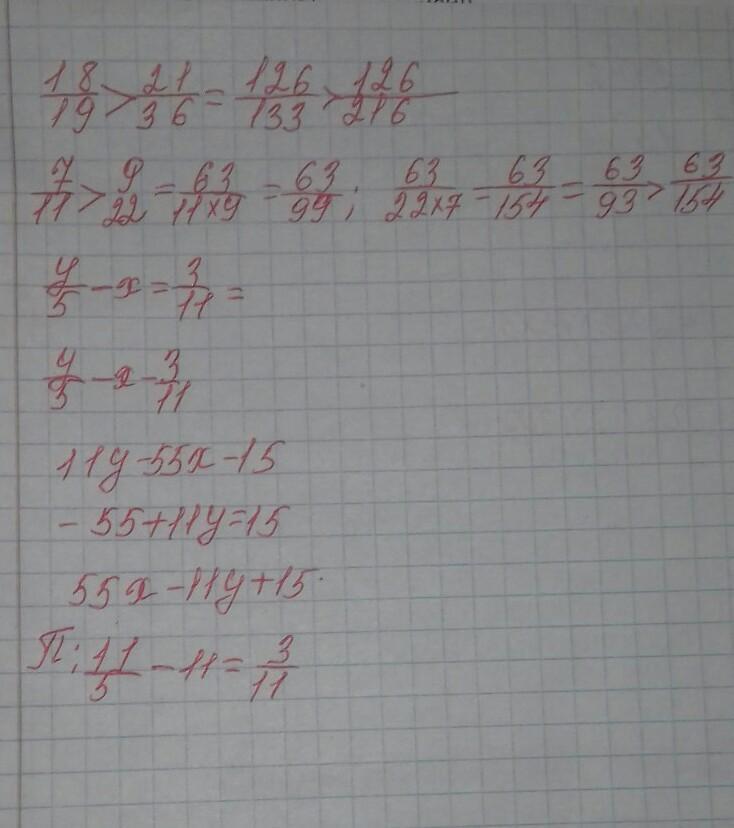 18/19 > 21/36 = 126/133 > 126/216
7/11 > 9/22 = 63/11×9 = 63/99; 63/22×7 = 63/154 = 63/93 > 63/154
y/5 - x = 3/11 =
y/5 - x - 3/11
11y - 55x - 15
- 55 + 11y = 15
55x - 11y + 15
П: 11/5 - 11 = 3/11